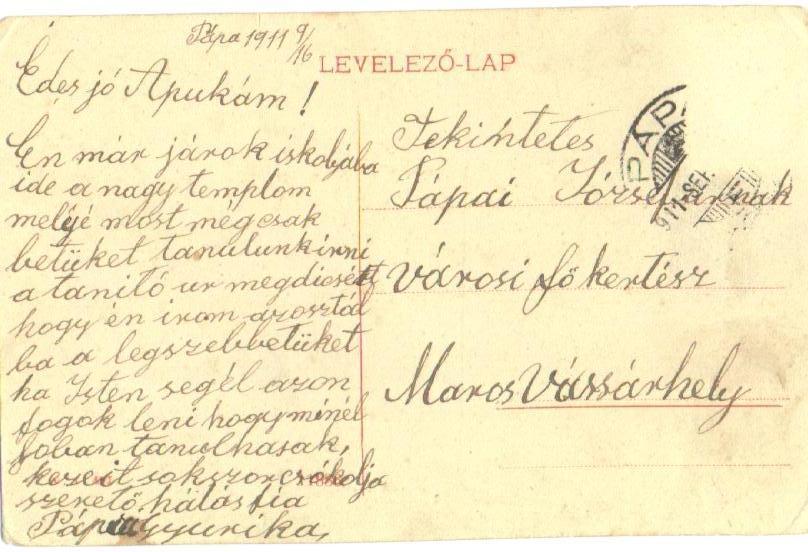 Pápa 1911 9/16
LEVELEZŐ-LAP
Édes jó Apukám!
Én már járok iskoljába
ide a nagy templom
mellyé most mégcsak
betüket tanulunk irni
a tanító ur megdicsért
hogy én irom azosztál
ba a legszebb betüket
ha Isten segél azon
fogok leni hogy minél
joban tanulhasak,
kezeit sokszor csókolja
szerető hálás fia
Pápai Gyurika,
Tekintetes
Pápai Józsefurnak
Városi főkertész
Maros Vássárhely
PÁP
911 SEP